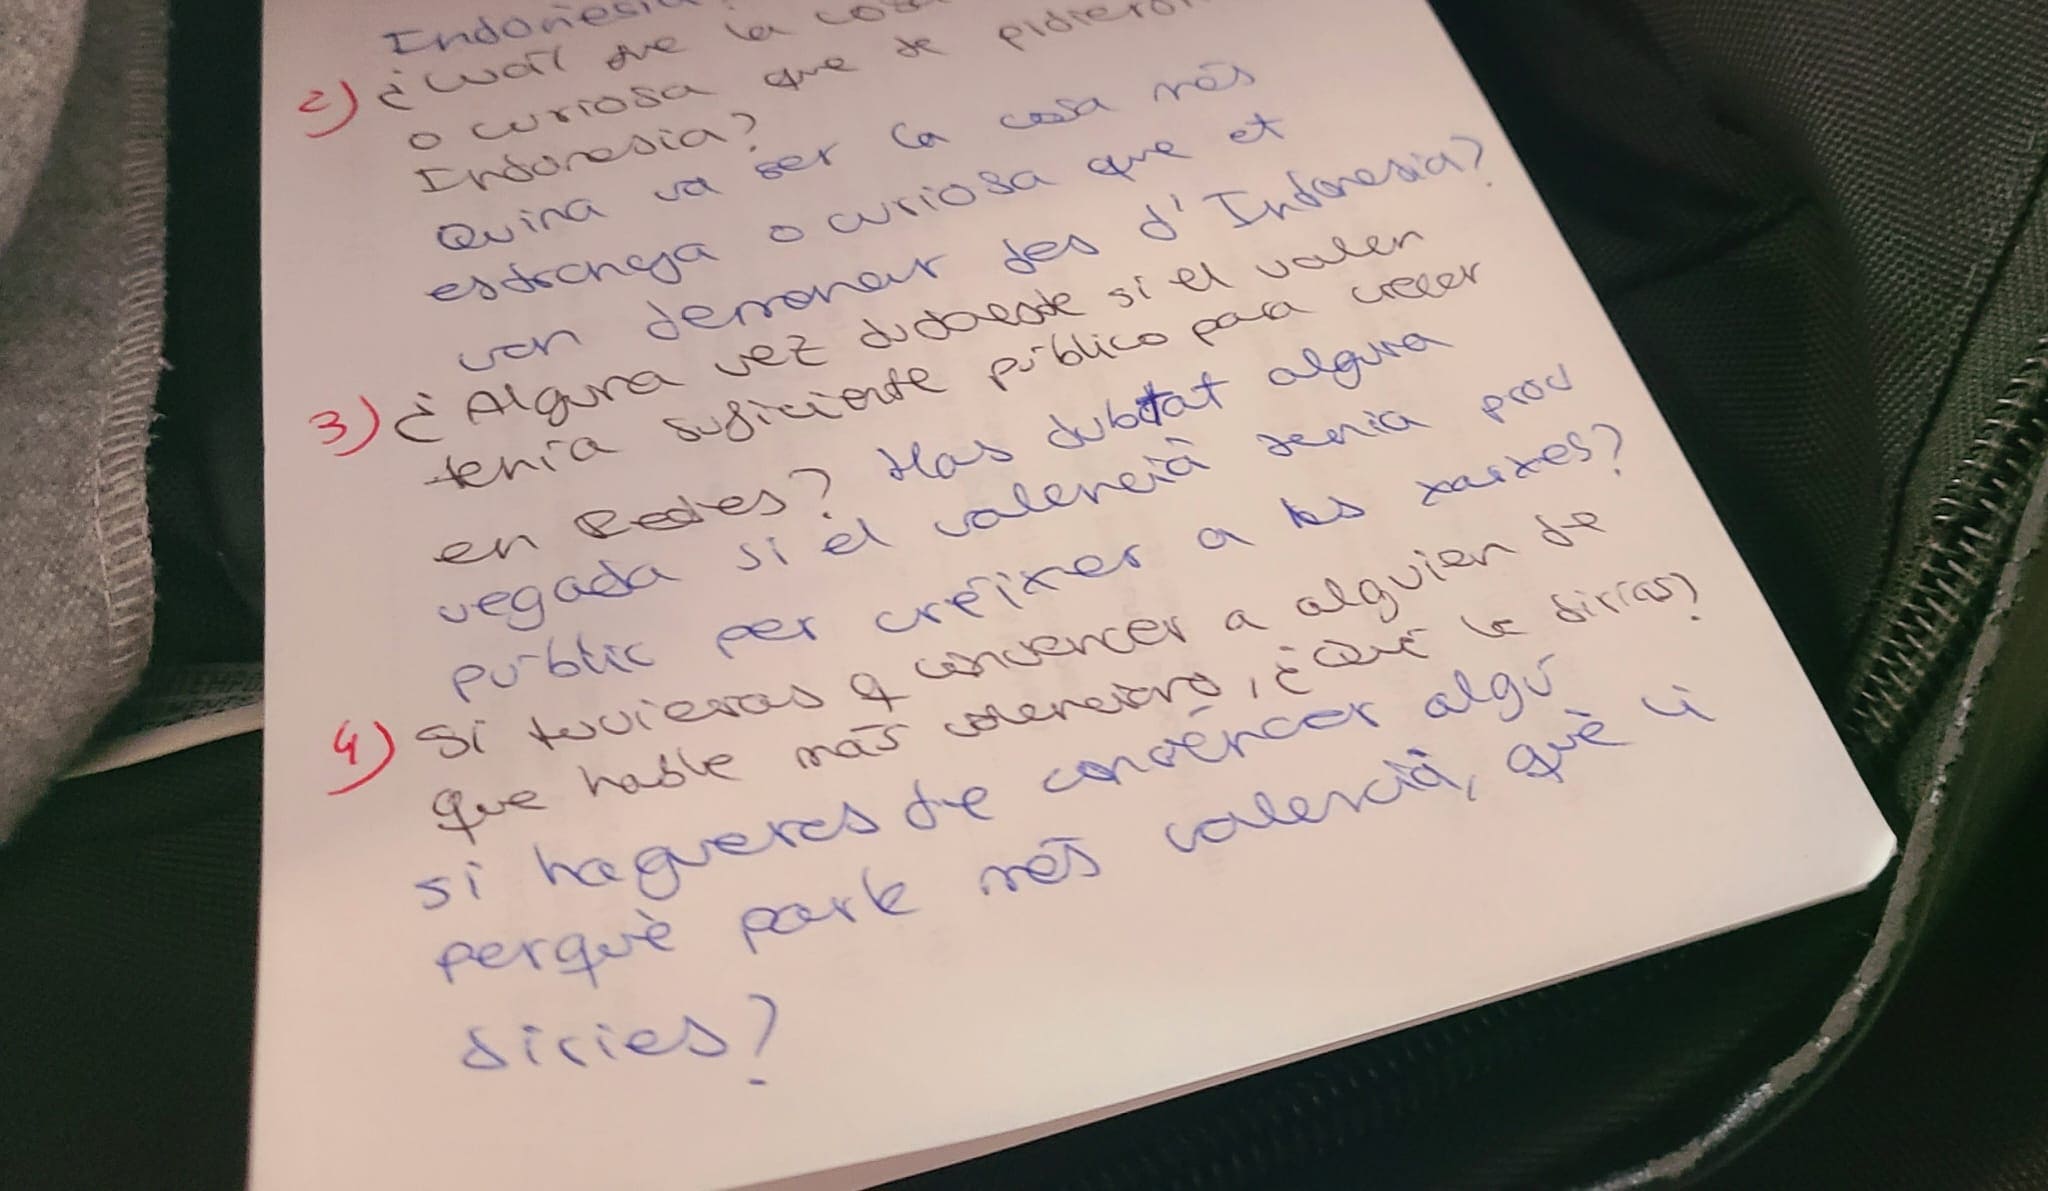 Indonesia?
2) ¿Cuál fue la cosa
o curiosa que te pidieron
Indonesia?
Quina va ser la cosa més
estranya o curiosa que et
van demanar des d'Indonesia?
3) ¿Alguna vez dudaste si el valen
tenía suficiente público para crecer
en Redes? Has dubtat alguna
vegada si el valencià tenia prou
públic per créixer a les xarxes?
4) Si tuvieras q convencer a alguien de
que hable más valenciano, ¿Qué le dirías?
Si hagueres de convéncer algú
perquè parle més valencià, què li
diries?